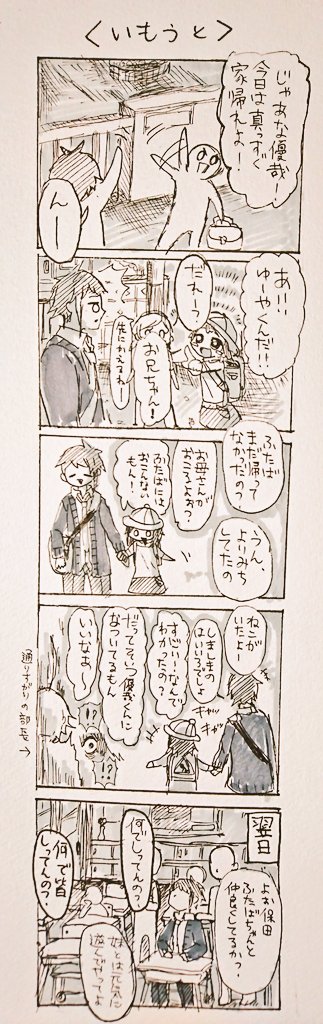 ＜いもうと＞
じゃあな優哉ー！
今日は真っすぐ
家帰れよー！
んー
あーっ
ゆーやくんだ!!
だれー？
お兄ちゃん！
先にかえるねー
ふたば
まだ帰って
なかったの？
うん、
よりみち
してたの
お母さんが
おこるよぉ？
ふたばには
おこんない
もん！
ねこが
いたよー
しましまの
はいいろでしょ
すごい〜なんで
わかったの？
だってそいつ優哉くんに
なついてるもん
いいなぁー
キャッ
キャッ
!?
!?
通りすがりの部長→
翌日
よぉ保田
ふたばちゃんと
仲良くしてるか？
何でしってんの？
何で皆
しってんの？
妹とは元気に
遊んでやってよ